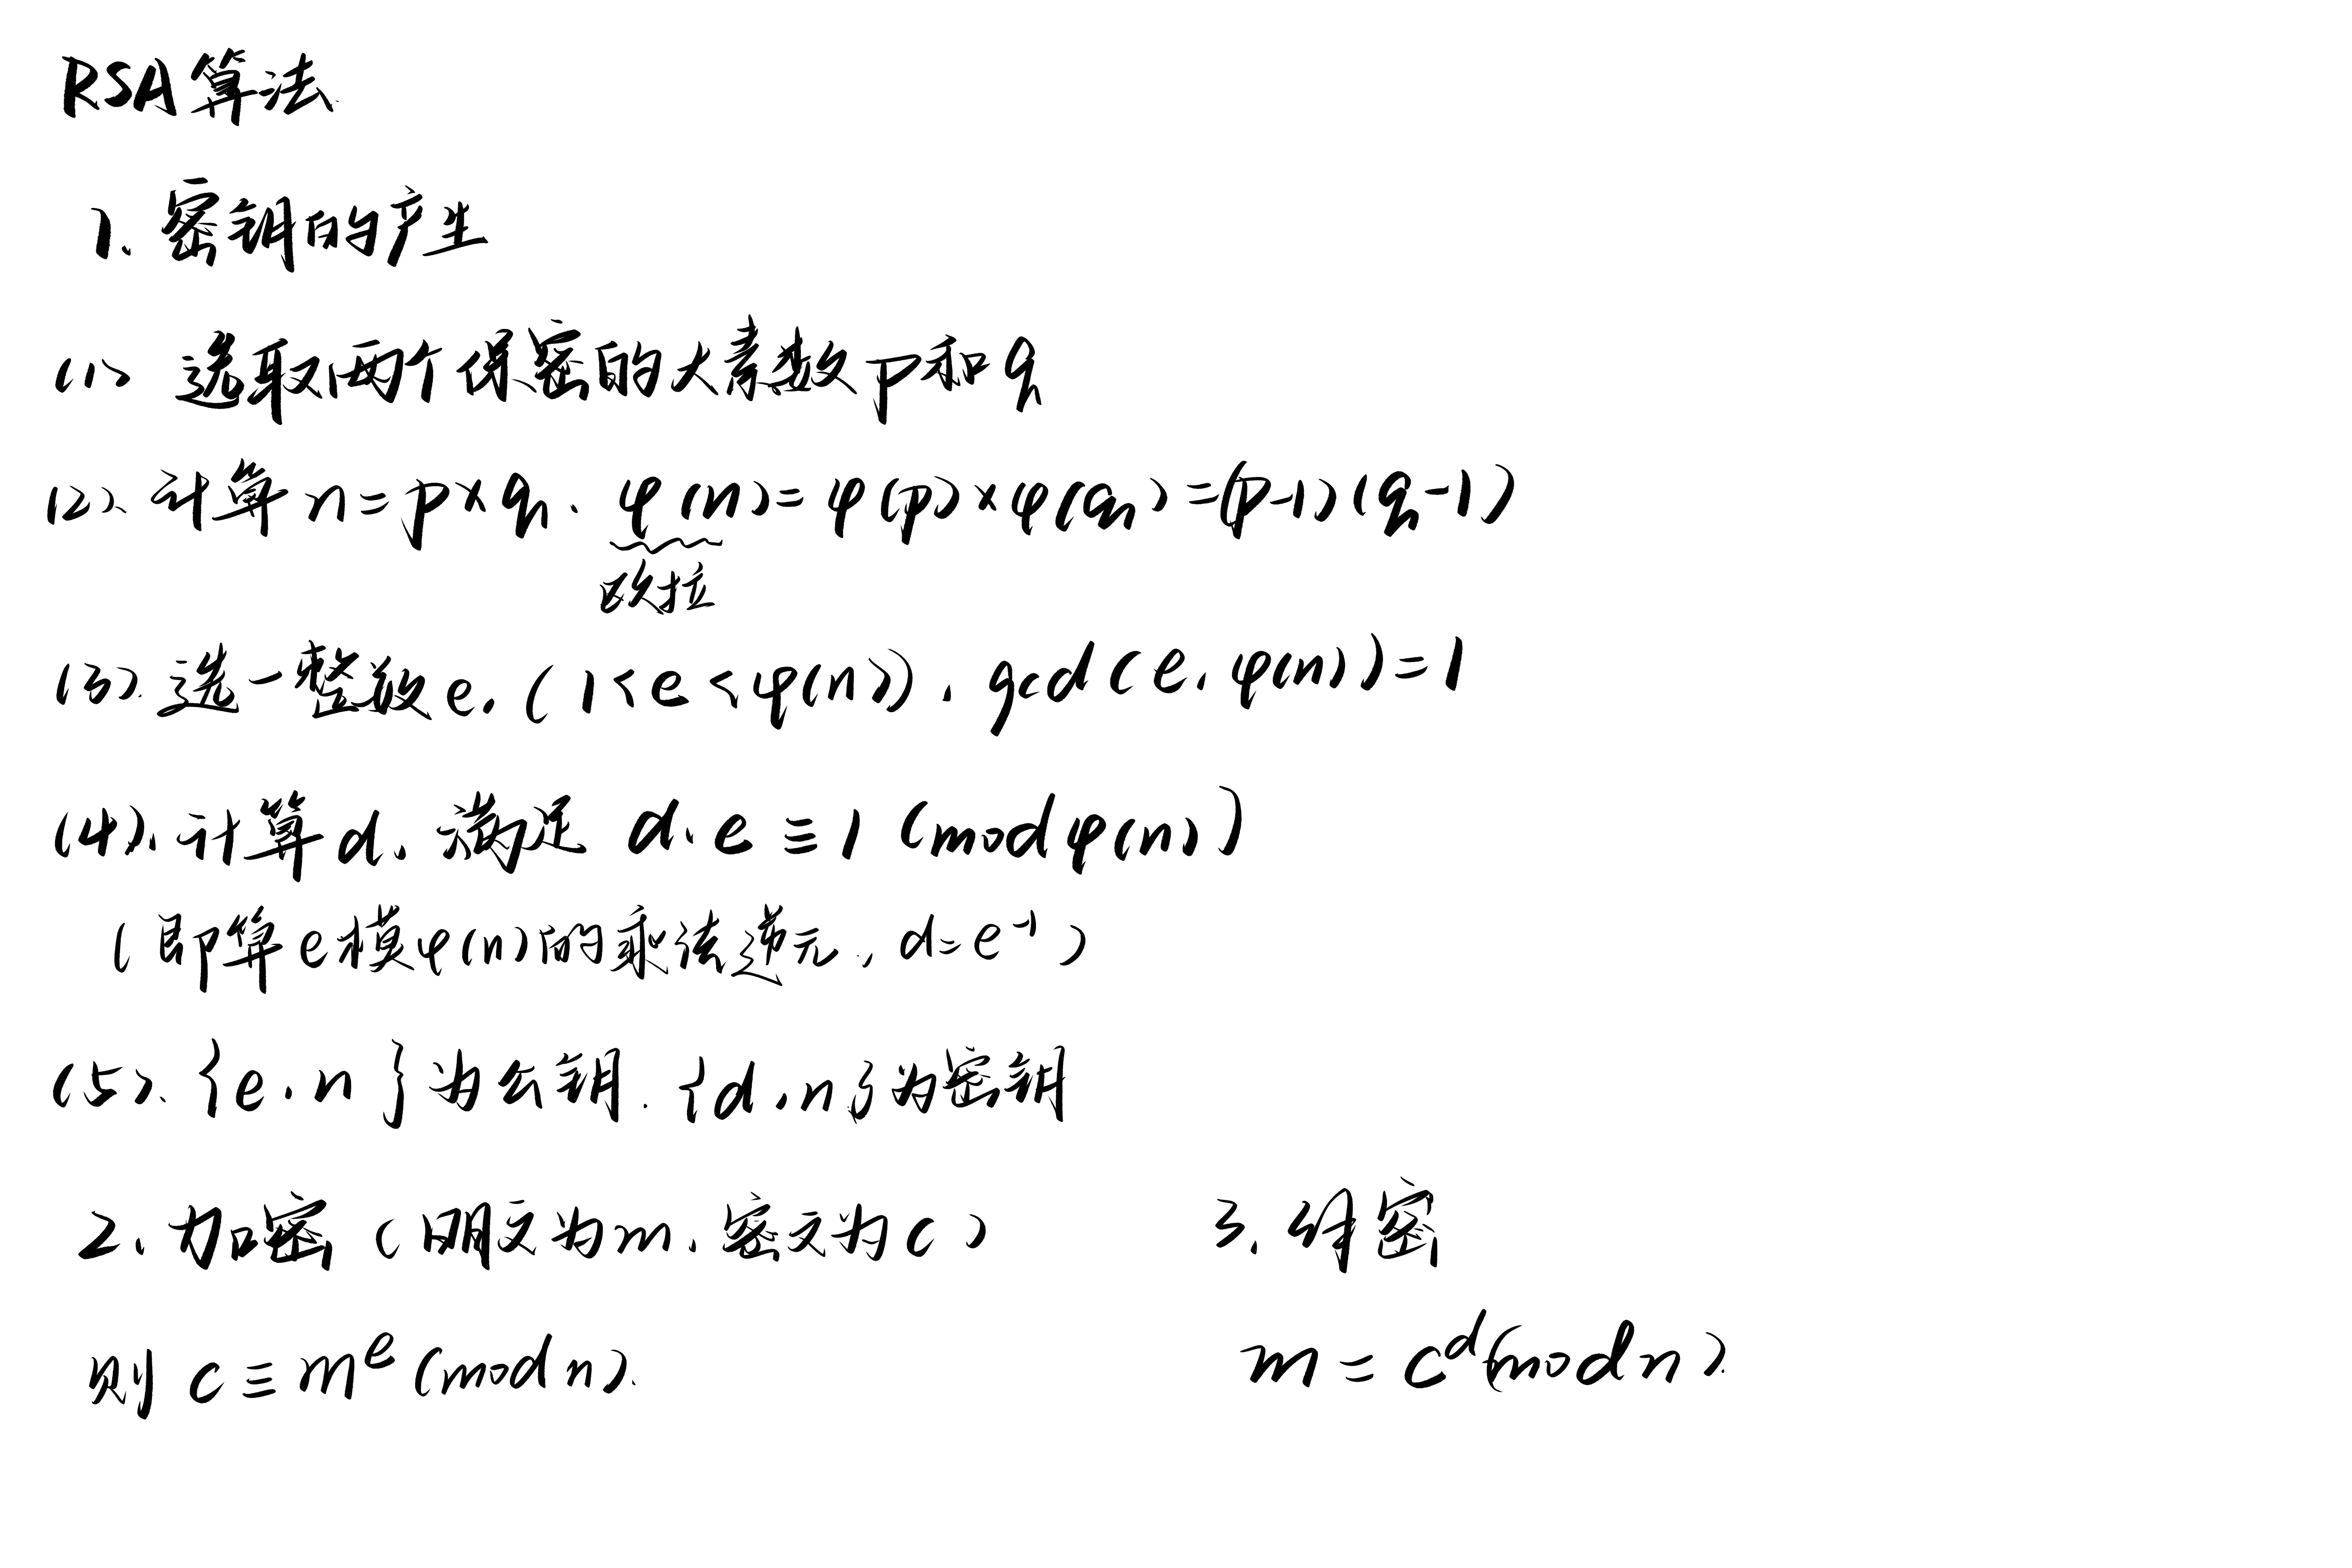 RSA算法
1. 密钥的产生
(1) 选取两个保密的大素数p和q
(2). 计算n=p×q. φ(n)=φ(p)×φ(q)=(p-1)(q-1)
欧拉
(3). 选一整数e. (1<e<φ(n)). gcd(e, φ(n))=1
(4). 计算d. 满足 d·e≡1 (mod φ(n))
(即算e模φ(n)的乘法逆元., d=e⁻¹)
(5). {e.n}为公钥. {d,n}为密钥
2. 加密 (明文为m. 密文为c)
则 c≡mᵉ(mod n).
3. 解密
m=cᵈ(mod n).